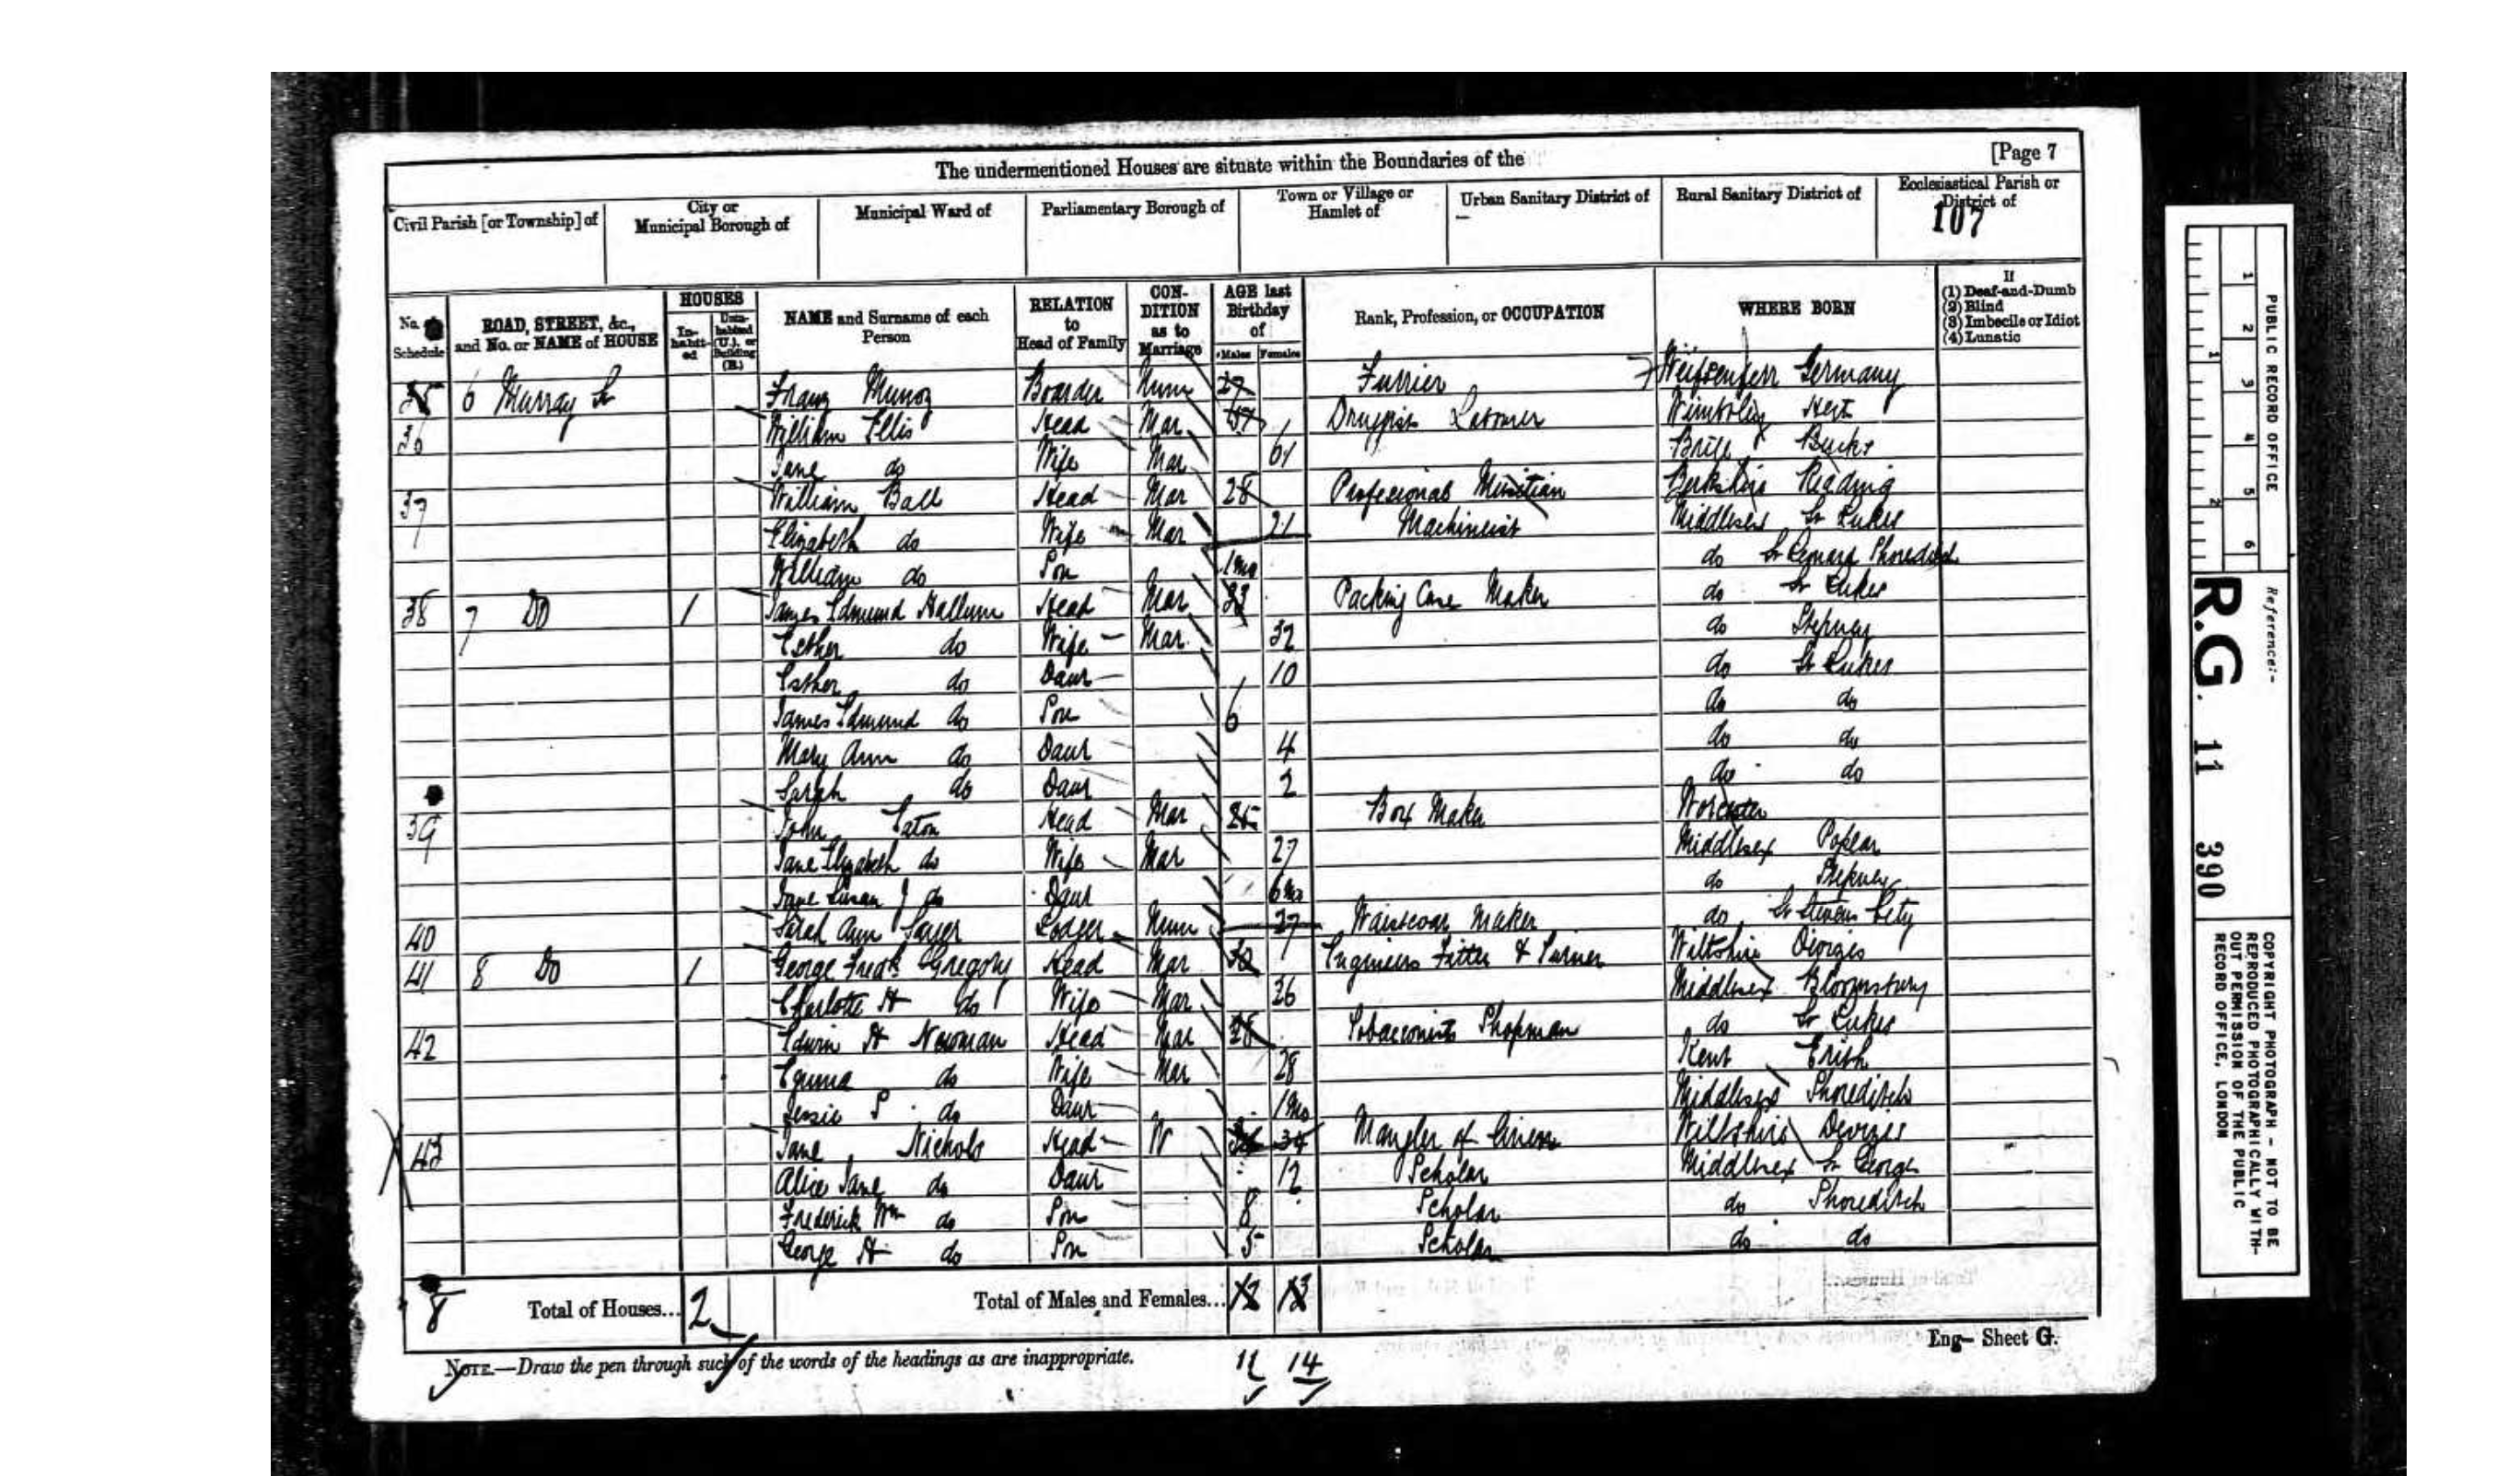 The undermentioned Houses are situate within the Boundaries of the [Page 7
Civil Parish [or Township] of City or Municipal Borough of Municipal Ward of Parliamentary Borough of Town or Village or Hamlet of Urban Sanitary District of Rural Sanitary District of Ecclesiastical Parish or District of
107
No. of Schedule ROAD, STREET, &c., and No. or NAME of HOUSE HOUSES In-habit-ed Unin-habited (U.), or Building (B.) NAME and Surname of each Person RELATION to Head of Family CON-DITION as to Marriage AGE last Birthday of Males Females Rank, Profession, or OCCUPATION WHERE BORN If (1) Deaf-and-Dumb (2) Blind (3) Imbecile or Idiot (4) Lunatic
35 6 Murray St Franz Munoz Boarder Unm 27 Furrier Germany
36 William Ellis Head Mar 57 Druggist Labourer Hert
Jane do Wife Mar 61 Brill Bucks
37 William Ball Head Mar 28 Profesional Musitian Berkshire Reading
Elizabeth do Wife Mar 21 Machineist Middlesex St Lukes
William do Son 1mo do St Leonard Shoreditch
38 7 Do 1 James Edmund Hallum Head Mar 33 Packing Case Maker do St Lukes
Esther do Wife Mar 32 do Stepney
Esther do Daur 10 do St Lukes
James Edmund do Son 6 do do
Mary Ann do Daur 4 do do
Sarah do Daur 2 do do
39 John Eaton Head Mar 25 Box Maker Worcester
Jane Elizabeth do Wife Mar 27 Middlesex Poplar
Jane Susan J do Daur 6mo do Stepney
40 Sarah Ann Sayer Lodger Unm 27 Waistcoat Maker do St Stevens City
41 8 Do 1 George Fredk Gregory Head Mar 30 Engineers Fitter & Turner Wiltshire Devizes
Charlotte H do Wife Mar 26 Middlesex Bloomsbury
42 Edwin H Newman Head Mar 28 Tobacconists Shopman do St Lukes
Emma do Wife Mar 28 Kent Erith
Jessie S do Daur 1mo Middlesex Shoreditch
43 Jane Nichols Head W 34 Mangler of Linen Wiltshire Devizes
Alice Jane do Daur 12 Scholar Middlesex St George
Frederick Wm do Son 8 Scholar do Shoreditch
George H do Son 5 Scholar do do
8 Total of Houses... 2 Total of Males and Females... 12 13
Eng— Sheet G.
NOTE.—Draw the pen through such of the words of the headings as are inappropriate.
11 14
PUBLIC RECORD OFFICE
1 2 3 4 5 6
1 2
Reference:-
R.G. 11 390
COPYRIGHT PHOTOGRAPH - NOT TO BE
REPRODUCED PHOTOGRAPHICALLY WITH-
OUT PERMISSION OF THE PUBLIC
RECORD OFFICE, LONDON